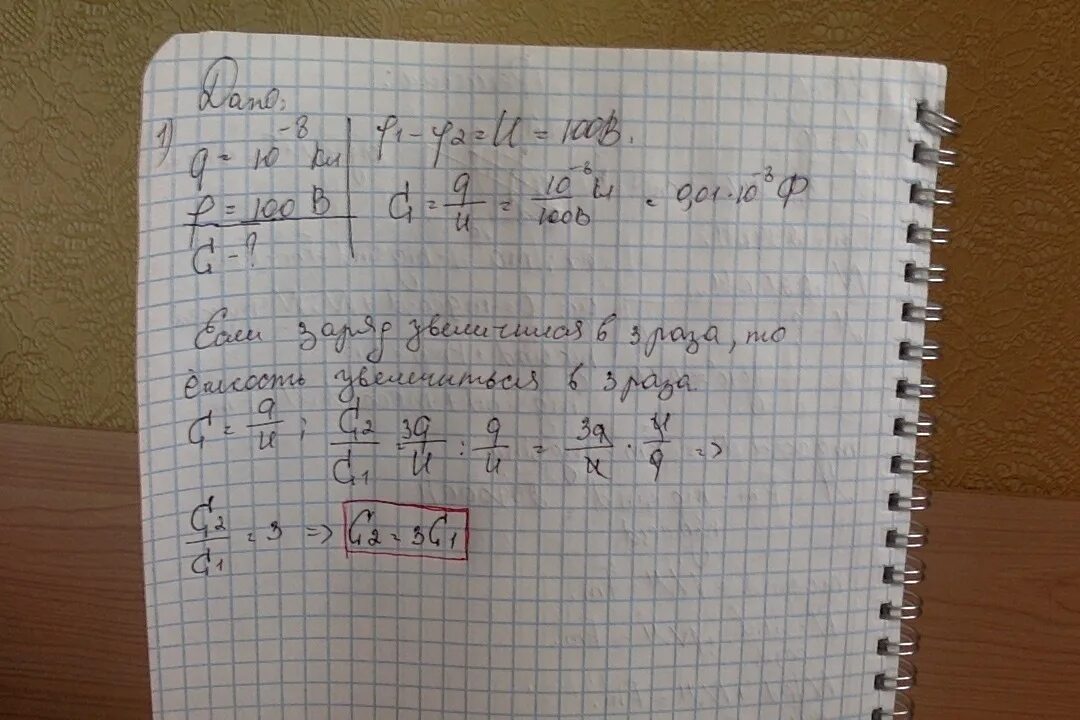 Дано:
1) q = 10⁻⁸ Кл
φ = 100 В
C - ?
φ1 - φ2 = U = 100В.
C = q/u = 10⁻⁸ Кл/100В = 0,01·10⁻⁸ Ф
Если заряд увеличился в 3 раза, то
ёмкость увеличиться в 3 раза
C = q/u ; C2/C1 = 3q/u : q/u = 3q/u · u/q =>
C2/C1 = 3 => C2 = 3C1